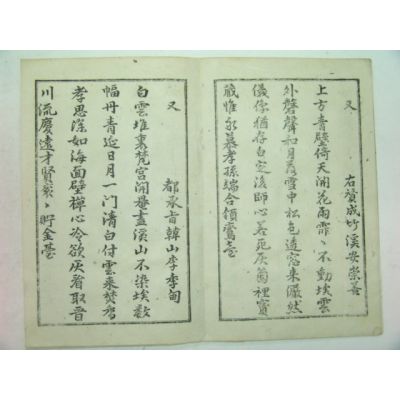 又
右贊成竹溪安崇善
上方青壁倚天開花雨霏〻不動埃雲
外磬聲和月落雪中松色透窓来儼然
儀像猶存白定後師心若死灰篋裡寳
藏惟永慕孝孫端合領鸞臺
又
都承旨韓山李季甸
白雲堆裏梵宮開畫盡溪山不染埃數
幅丹青近日月一門清白付雲来焚香
孝思深如海面壁禪心冷欲灰看取晉
川流慶遠才賢袞〻貯金臺